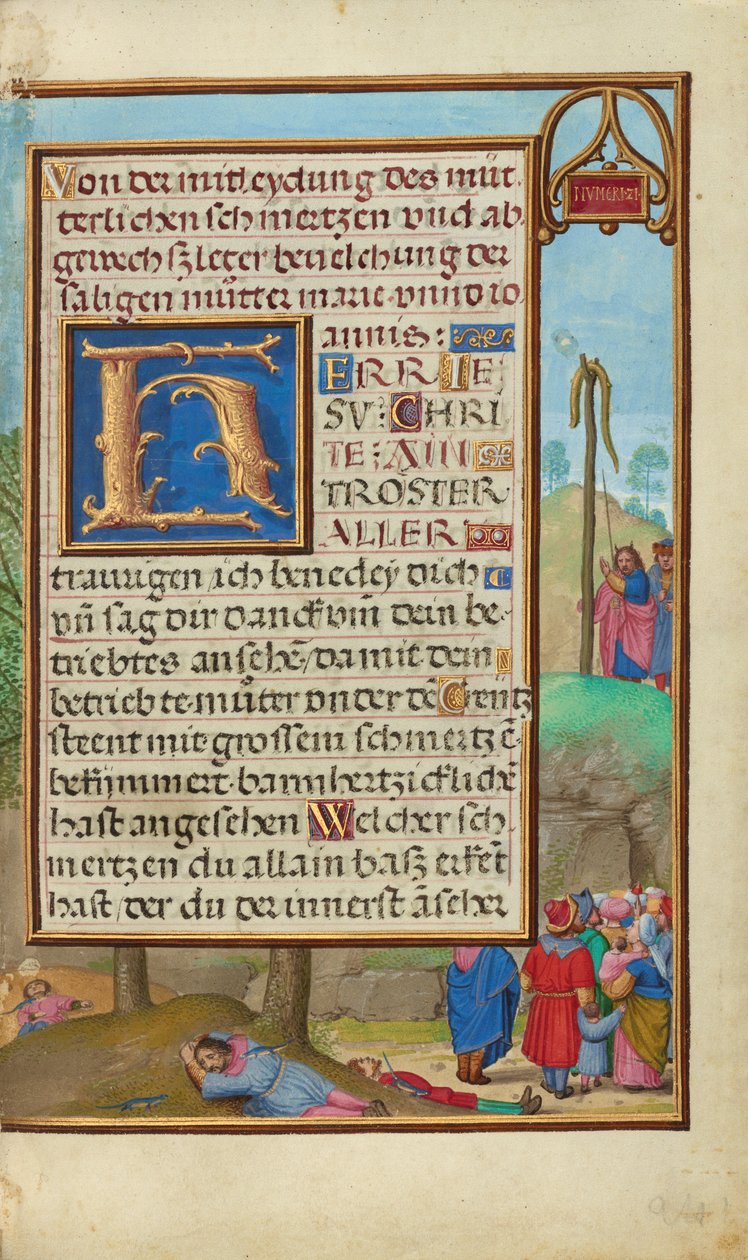 Von der mitleydung des müt
terlichen schmertzen vnd ab
gewechszleter beuelchung der
säligen můtter marie · vnnd io
annis :
HERR IE
SV : CHRI
TE : AIN
TROSTER
ALLER
traurigen / ich benedeÿ dich
vn̄ sag dir danck vm̄ dein be⸗
triebtes ansehē / da mit dein
betriebte můter vnder dē Creütz
steent mit grossem schmertzē
bekimmert · barmhertzicklichē
hast angesehen Welcher sch
mertzen du allain basz erkēt
hast / der du der innerst āseher
NVMERI · 21 ·